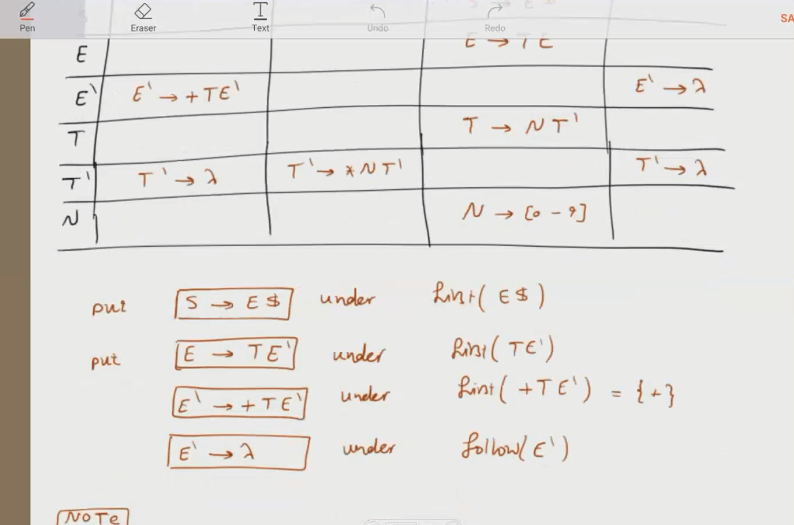 Pen Eraser Text Undo Redo SA
E E → TE
E' E' → +TE' E' → λ
T T → NT'
T' T' → λ T' → *NT' T' → λ
N N → [0-9]
put S → E$ under first(E$)
put E → TE' under first(TE')
E' → +TE' under first(+TE') = {+}
E' → λ under follow(E')
NOTE